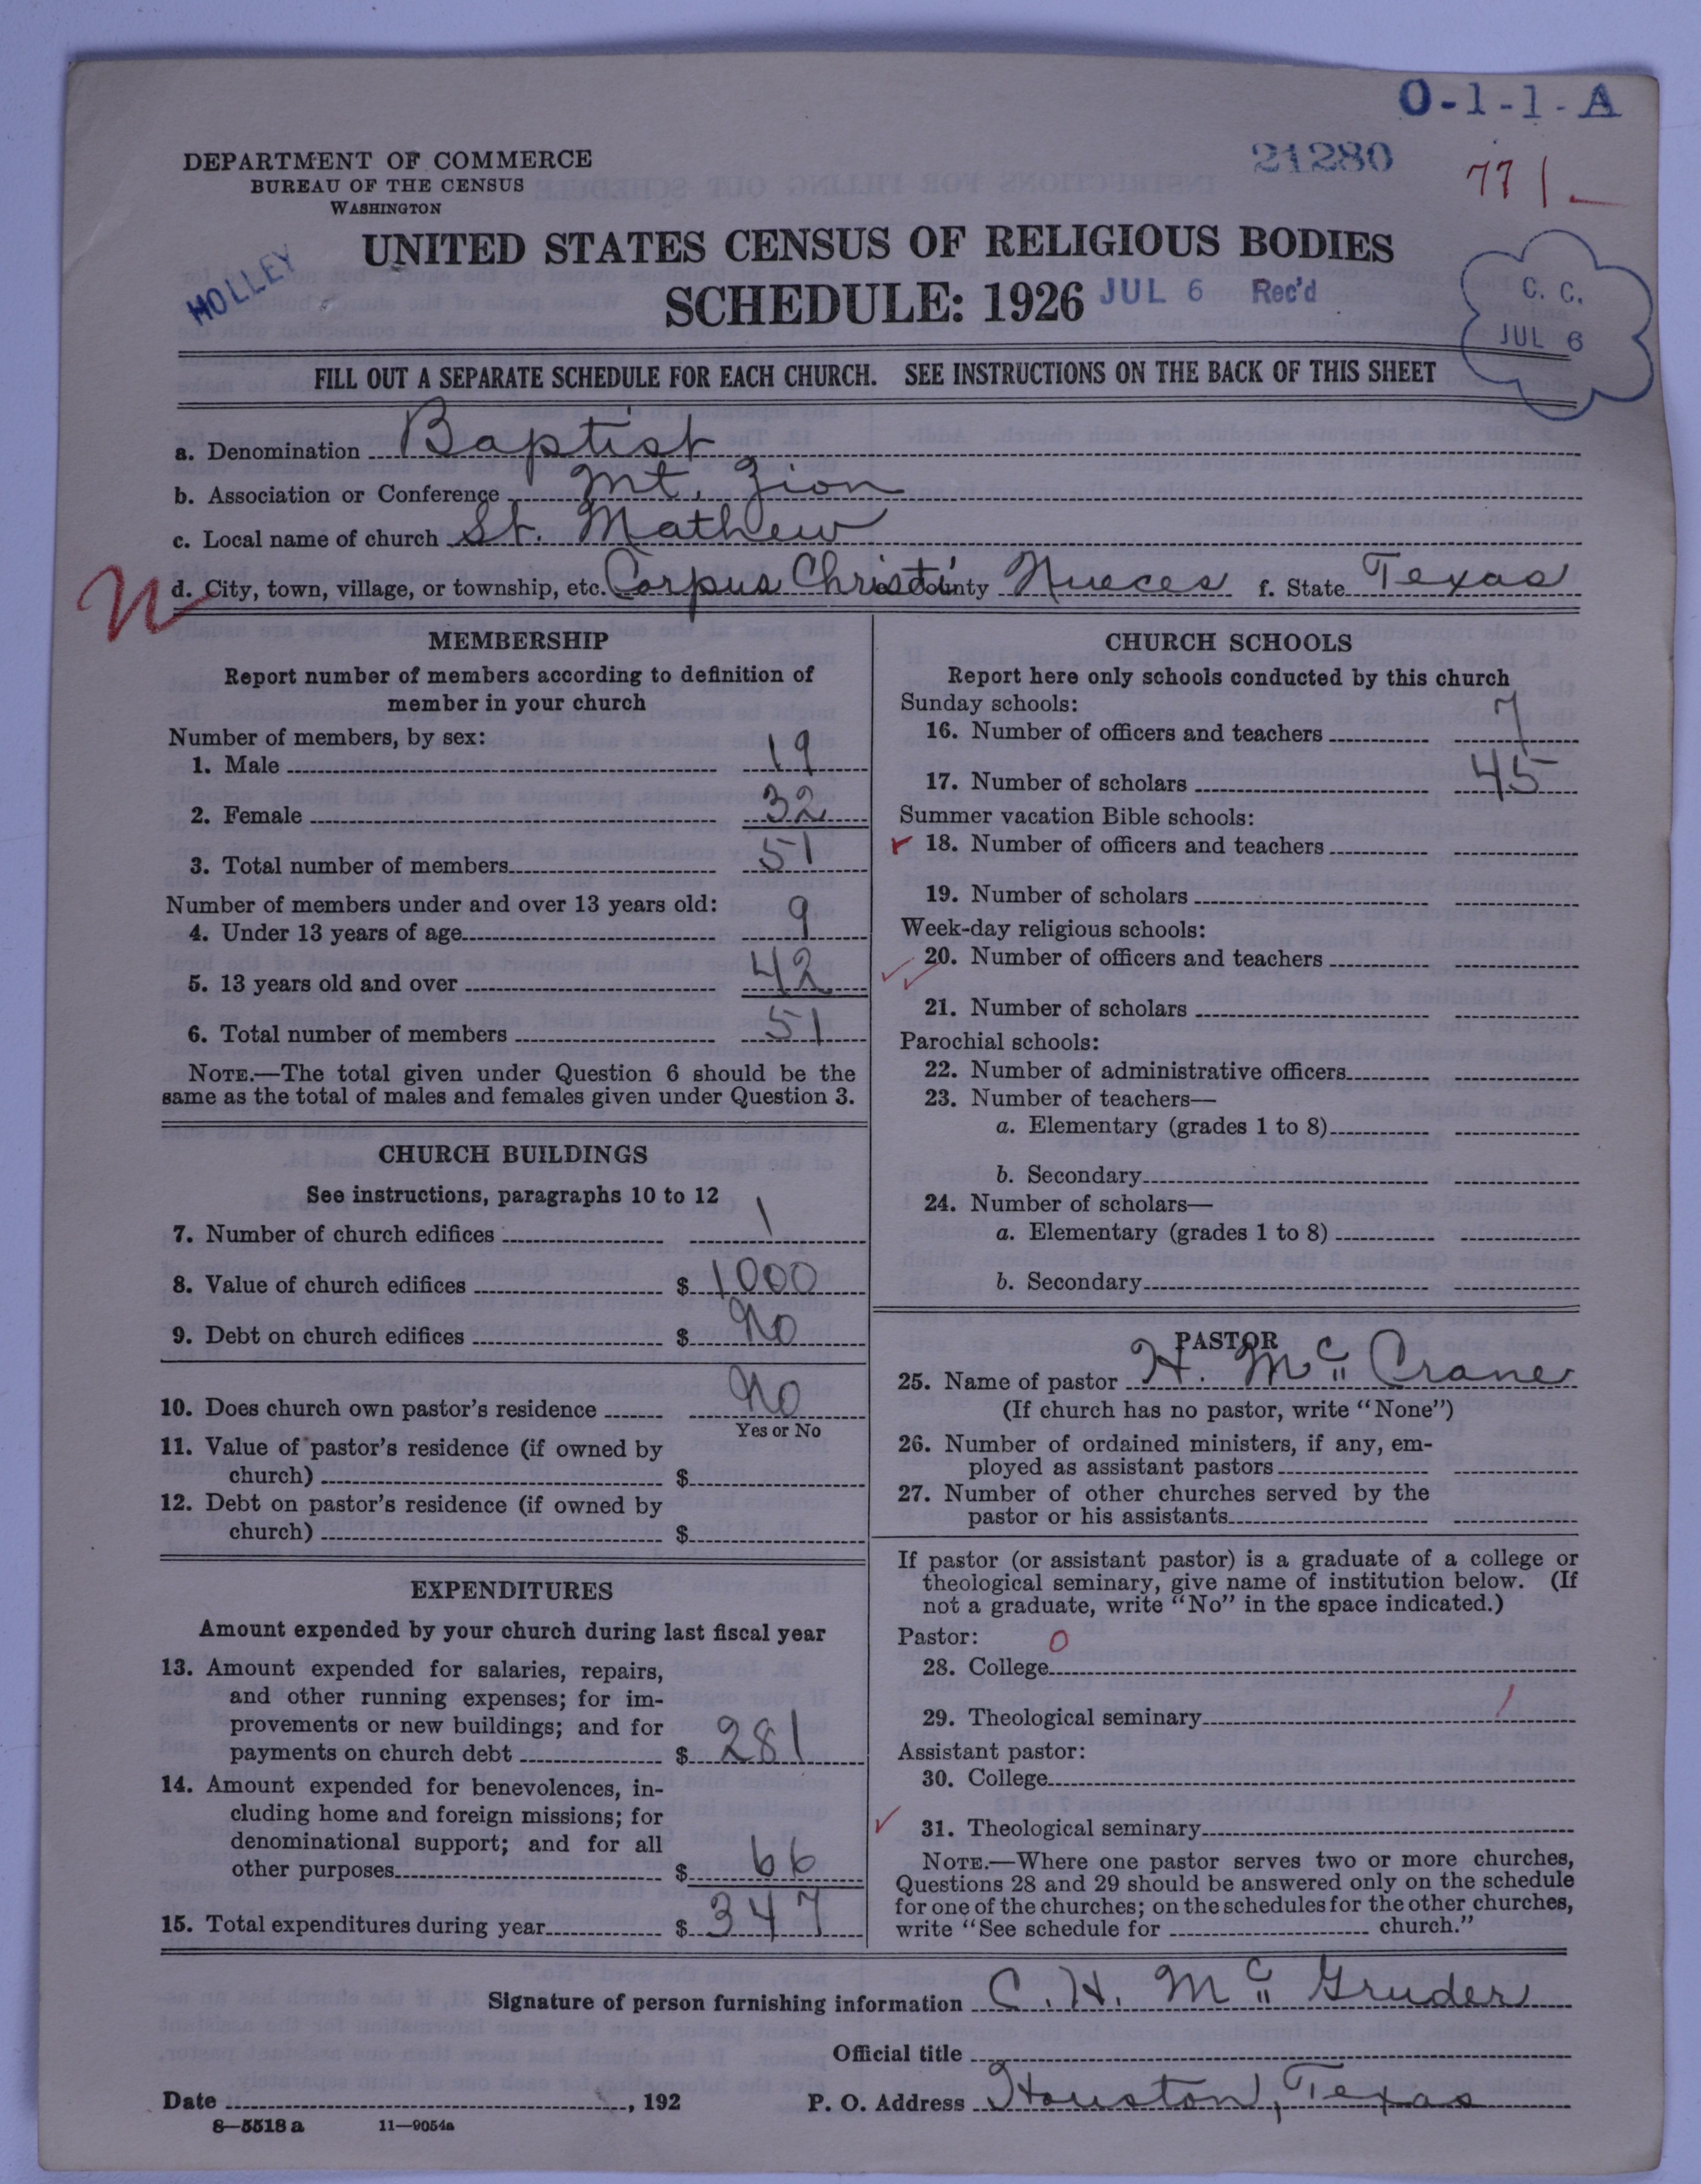 O-1-1-A
DEPARTMENT OF COMMERCE
BUREAU OF THE CENSUS
WASHINGTON
21280
771
UNITED STATES CENSUS OF RELIGIOUS BODIES
HOLLEY
SCHEDULE: 1926 JUL 6 Rec'd
C. C.
JUL 6
FILL OUT A SEPARATE SCHEDULE FOR EACH CHURCH. SEE INSTRUCTIONS ON THE BACK OF THIS SHEET
a. Denomination Baptist
b. Association or Conference Mt. Zion
c. Local name of church St. Mathew
N d. City, town, village, or township, etc. Corpus Christi County Nueces f. State Texas
MEMBERSHIP
Report number of members according to definition of
member in your church
Number of members, by sex:
1. Male 19
2. Female 32
3. Total number of members 51
Number of members under and over 13 years old:
4. Under 13 years of age 9
5. 13 years old and over 42
6. Total number of members 51
NOTE.—The total given under Question 6 should be the
same as the total of males and females given under Question 3.
CHURCH BUILDINGS
See instructions, paragraphs 10 to 12
7. Number of church edifices 1
8. Value of church edifices $ 1000
9. Debt on church edifices $ No
10. Does church own pastor's residence No
Yes or No
11. Value of pastor's residence (if owned by
church) $
12. Debt on pastor's residence (if owned by
church) $
EXPENDITURES
Amount expended by your church during last fiscal year
13. Amount expended for salaries, repairs,
and other running expenses; for im-
provements or new buildings; and for
payments on church debt $ 281
14. Amount expended for benevolences, in-
cluding home and foreign missions; for
denominational support; and for all
other purposes $ 66
15. Total expenditures during year $ 347
CHURCH SCHOOLS
Report here only schools conducted by this church
Sunday schools:
16. Number of officers and teachers 7
17. Number of scholars 45
Summer vacation Bible schools:
18. Number of officers and teachers
19. Number of scholars
Week-day religious schools:
20. Number of officers and teachers
21. Number of scholars
Parochial schools:
22. Number of administrative officers
23. Number of teachers—
a. Elementary (grades 1 to 8)
b. Secondary
24. Number of scholars—
a. Elementary (grades 1 to 8)
b. Secondary
PASTOR
25. Name of pastor H. Mc Crane
(If church has no pastor, write "None")
26. Number of ordained ministers, if any, em-
ployed as assistant pastors
27. Number of other churches served by the
pastor or his assistants
If pastor (or assistant pastor) is a graduate of a college or
theological seminary, give name of institution below. (If
not a graduate, write "No" in the space indicated.)
Pastor: 0
28. College
29. Theological seminary /
Assistant pastor:
30. College
31. Theological seminary
NOTE.—Where one pastor serves two or more churches,
Questions 28 and 29 should be answered only on the schedule
for one of the churches; on the schedules for the other churches,
write "See schedule for church."
Signature of person furnishing information C. H. Mc Gruder
Official title
Date , 192 P. O. Address Houston, Texas
8—5518 a 11—9054a